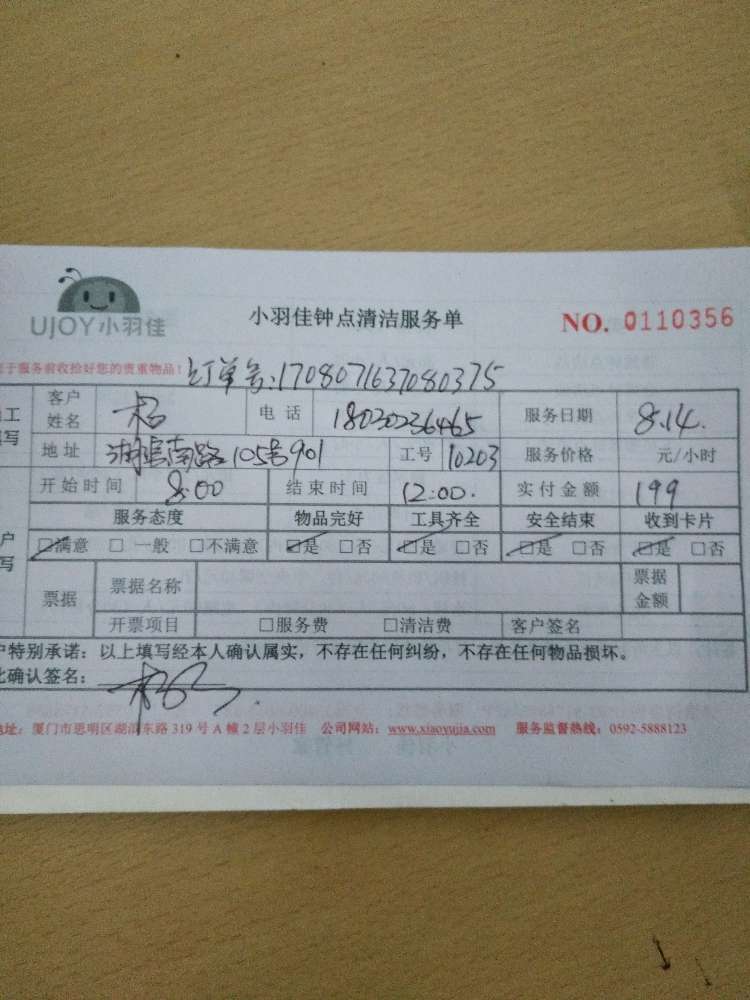 UJOY小羽佳
小羽佳钟点清洁服务单
NO. 0110356
于服务前收拾好您的贵重物品!
订单号:1708071637080375
客户姓名 电话 18030236465 服务日期 8.14.
地址 湖滨南路105号901 工号 10203 服务价格 元/小时
开始时间 8:00 结束时间 12:00. 实付金额 199
服务态度 物品完好 工具齐全 安全结束 收到卡片
☑满意 □ 一般 □不满意 ☑是 □否 ☑是 □否 ☑是 □否 ☑是 □否
票据 票据名称 票据金额
开票项目 □服务费 □清洁费 客户签名
户特别承诺:以上填写经本人确认属实,不存在任何纠纷,不存在任何物品损坏。
确认签名:
地址:厦门市思明区湖滨东路 319 号 A 幢 2 层小羽佳 公司网站:www.xiaoyujia.com 服务监督热线:0592-5888123